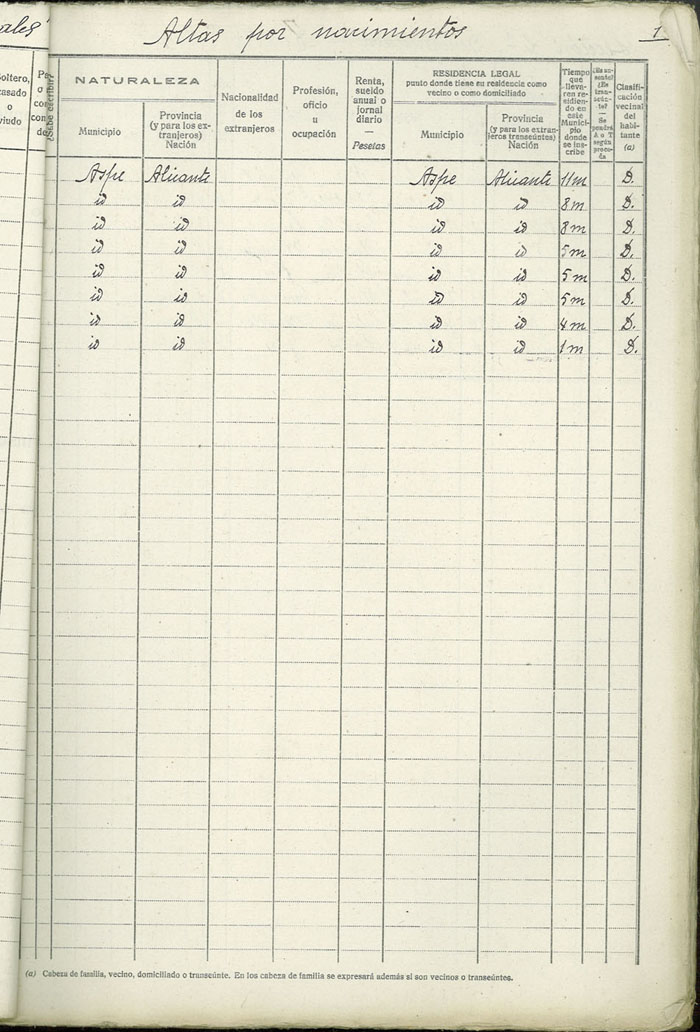 ales"
Altas por nacimientos
1
oltero,
casado
o
viudo
¿Sabe escribir?
NATURALEZA
Municipio
Provincia
(y para los ex-
tranjeros)
Nación
Nacionalidad
de los
extranjeros
Profesión,
oficio
u
ocupación
Renta,
sueldo
anual o
jornal
diario
—
Pesetas
RESIDENCIA LEGAL
punto donde tiene su residencia como
vecino o como domiciliado
Municipio
Provincia
(y para los extran-
jeros transeúntes)
Nación
Tiempo
que
lleva-
ren re-
sidien-
do en
este
Munici-
pio
donde
se ins-
cribe
Clasifi-
cación
vecinal
del
habi-
tante
(a)
Aspe Alicante Aspe Alicante 11 m D.
id id id id 8 m D.
id id id id 8 m D.
id id id id 5 m D.
id id id id 5 m D.
id id id id 5 m D.
id id id id 4 m D.
id id id id 1 m D.
(a) Cabeza de familia, vecino, domiciliado o transeúnte. En los cabeza de familia se expresará además si son vecinos o transeúntes.